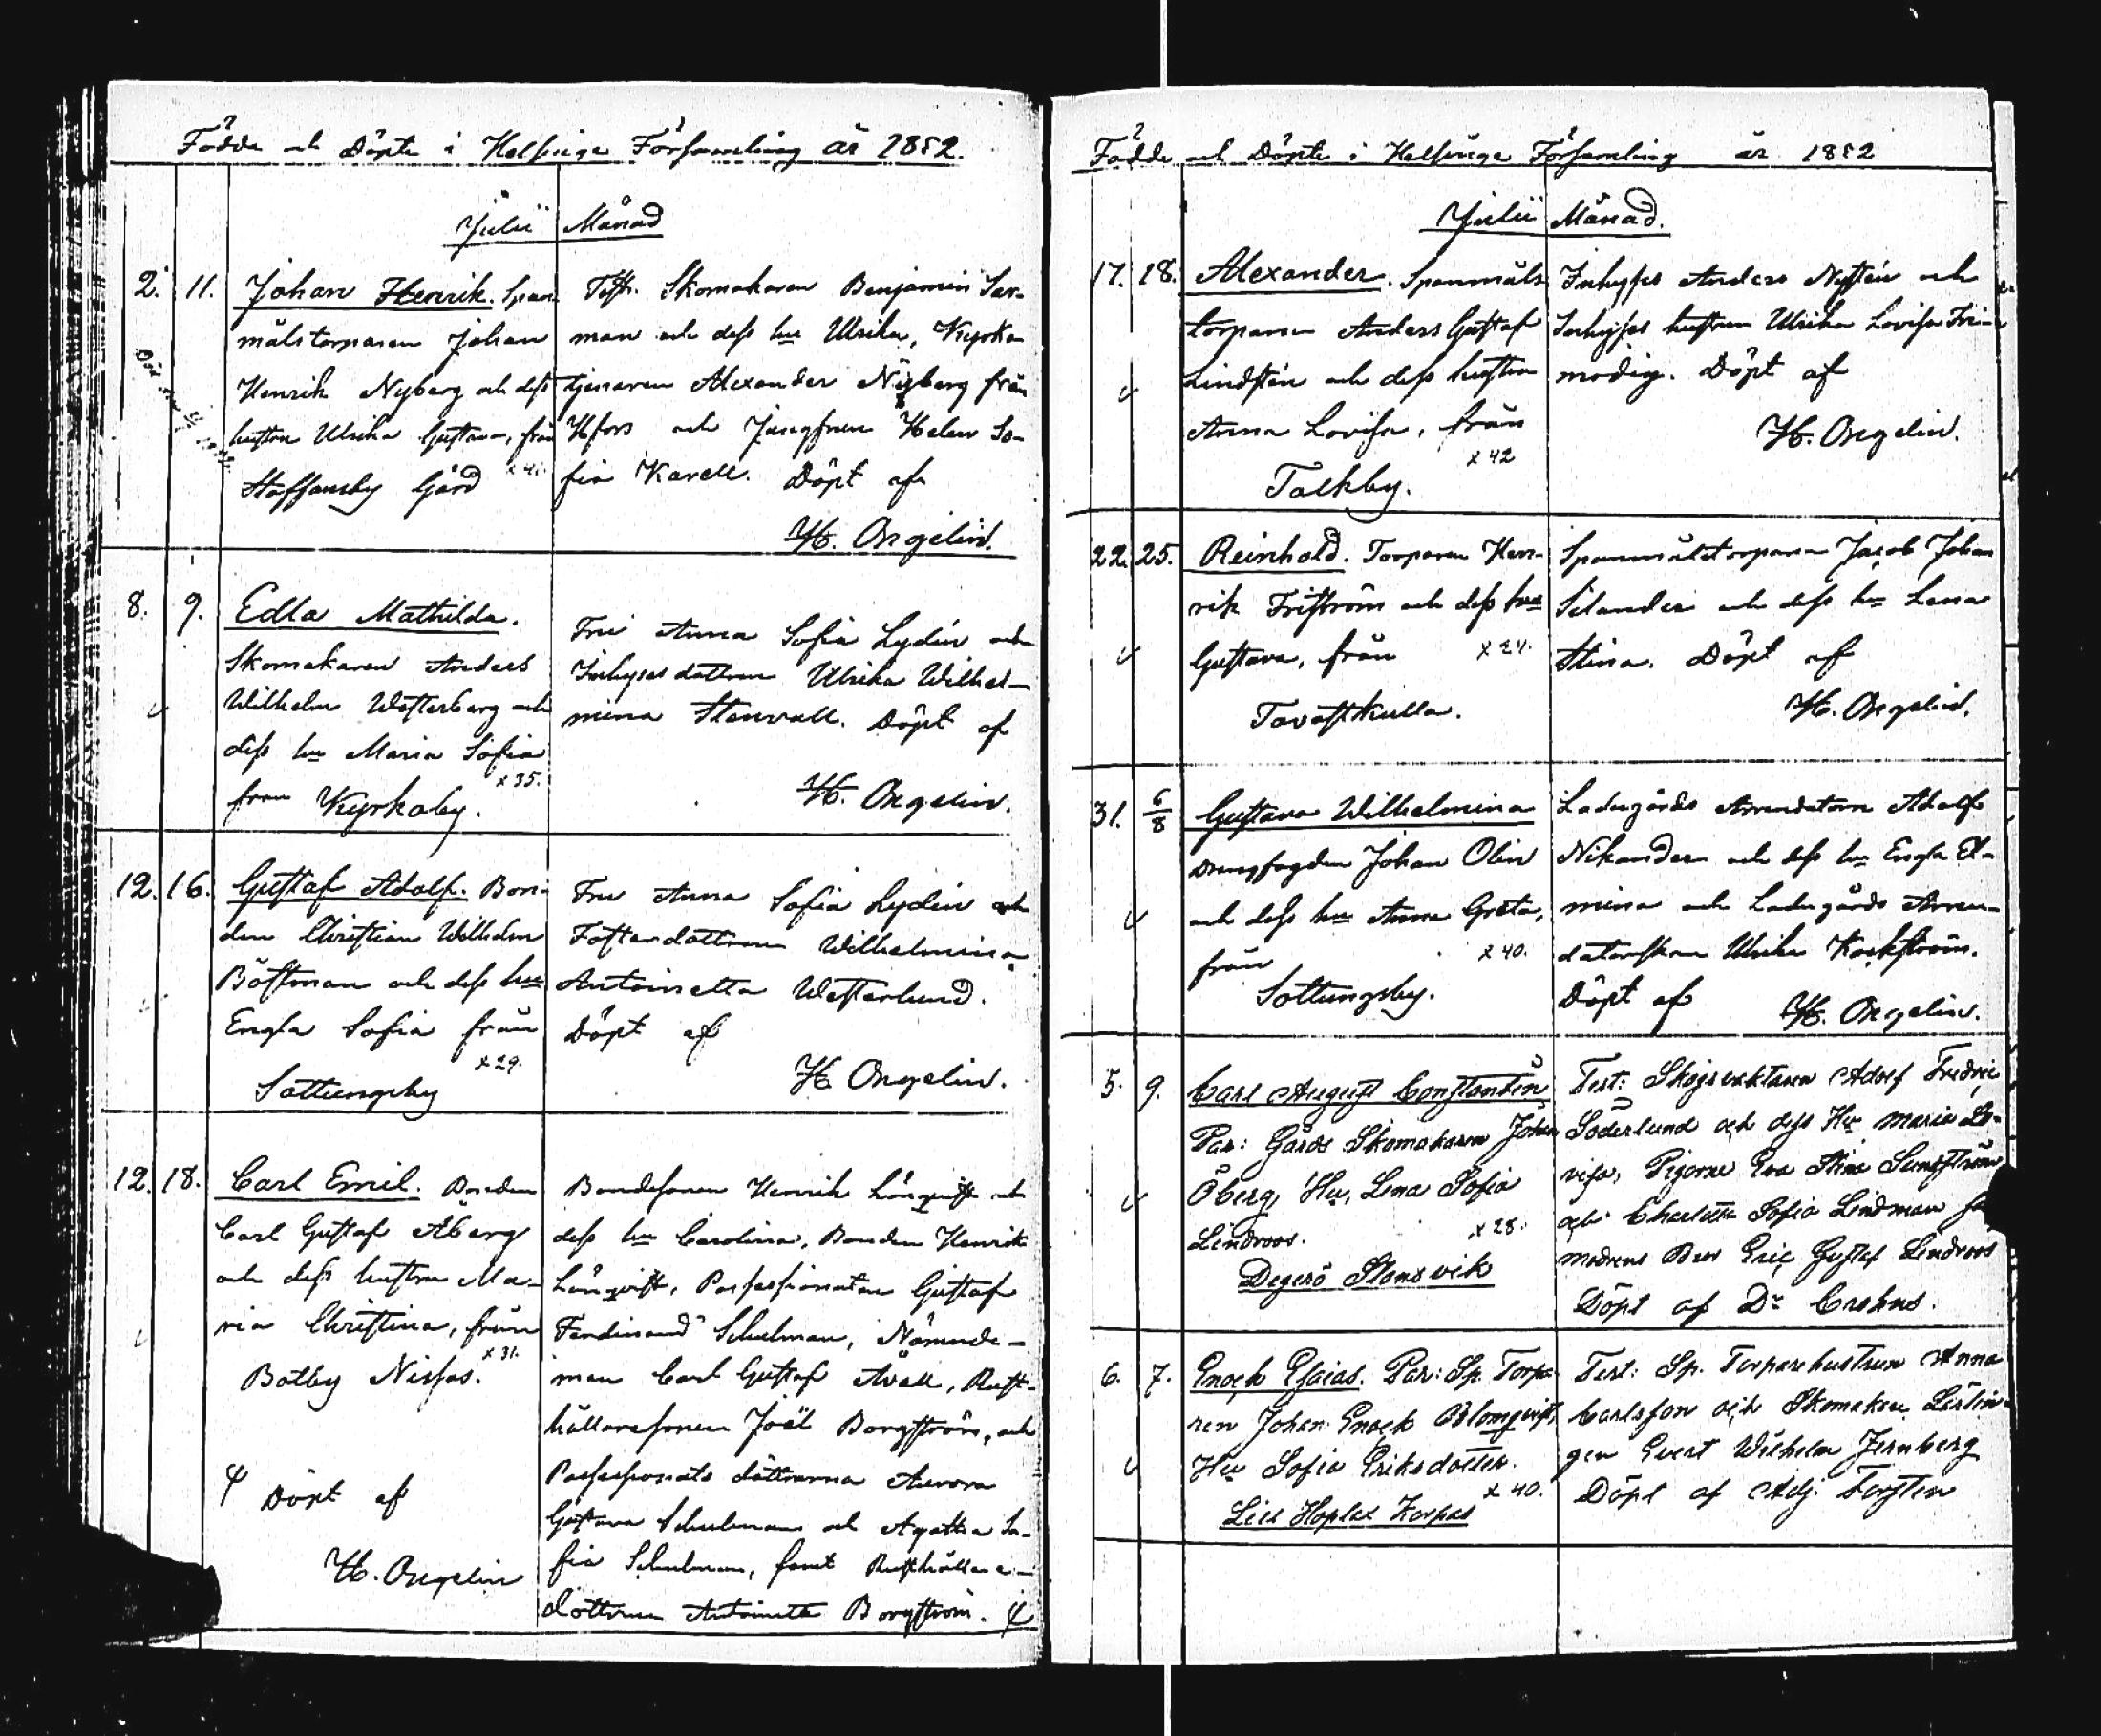 Födde och Döpte i Helsinge Församling år 1852.
Julii Månad
2. 11. Johan Henrik. Span-
målstorparen Johan
Henrik Nyberg och dess
hustru Ulrika Gustava, från
Staffansby Gård x 41.
Test. Skomakaren Benjamin
man och dess hu Ulrika, Kyrko-
tjenaren Alexander Nyberg från
Hfors och Jungfrun Helena So-
fia Karell. Döpt af
H. Ongelin.
8. 9. Edla Mathilda.
Skomakaren Anders
Wilhelm Westerberg och
dess hu Maria Sofia
x 35.
från Kyrkoby.
Fru Anna Sofia Lydin och
Inhyses dottren Ulrika Wilhel-
mina Stenvall. Döpt af
H. Ongelin.
12. 16. Gustaf Adolf. Bon-
den Christian Wilhelm
Böstman och dess hu
Engla Sofia från
x 29.
Sottungsby
Fru Anna Sofia Lydin och
Fosterdottren Wilhelmina
Antoinetta Westerlund.
Döpt af
H. Ongelin.
12. 18. Carl Emil. Bonden
Carl Gustaf Åberg
och dess hustru Ma-
ria Christina, från
x 31.
Botby Nissas.
Döpt af
H. Ongelin
Bondesonen Henrik Lönqvist och
dess hu Carolina, Bonden Henrik
Lönqvist, Possessionaten Gustaf
Ferdinand Schulman, Nämnde-
man Carl Gustaf Avell, Rust-
hållaresonen Joël Borgström, och
Possessionats döttrarna Aurora
Gustava Schulman och Agatha So-
fia Schulman, samt Rusthållare-
dottren Antoinette Borgström.
Födde och Döpte i Helsinge Församling år 1852
Julii Månad.
17. 18. Alexander. Spanmåls
torparen Anders Gustaf
Lindstén och dess hustru
Anna Lovisa, från
x 42
Tolkby.
Inhyses Anders Nystén och
Inhyses hustrun Ulrika Lovisa Fri-
modig. Döpt af
H. Ongelin.
22. 25. Reinhold. Torparen Hen-
rik Friström och dess hu
Gustava, från x 24.
Tavastkulla.
Spanmålstorparen Jacob Johan
Silander och dess hu Lena
Stina. Döpt af
H. Ongelin.
31. 6/8 Gustava Wilhelmina
Drengfogden Johan Olin
och dess hu Anna Greta,
från x 40.
Sottungsby.
Ladugårds Arrendatorn Adolf
Nikander och dess hu Engla El-
mina och Ladugårds Arren-
datorskan Ulrika Kockström.
Döpt af H. Ongelin.
5. 9. Carl August Constantin
Par: Gårds Skomakaren Johan
Öberg, Hu, Lena Sofia
Lindroos. x 28.
Degerö Stansvik
Test: Skogsvaktaren Adolf Fredric
Söderlund och dess Hu Maria Lo-
visa, Pigorne Eva Stina Sundström
och Charlotta Sofia Lindman
modrens Bror Eric Gustaf Lindroos
Döpt af Dr Crohns.
6. 7. Enock Esaias. Par: Sp. Torpa-
ren Johan Enock Blomqvist,
Hu Sofia Eriksdotter.
x 40.
Lill Hoplax Korpas
Test: Sp. Torparehustrun Anna
Carlsson och Skomakare Lärlin-
gen Evert Wilhelm Jernberg
Döpt af Adj. Forstén